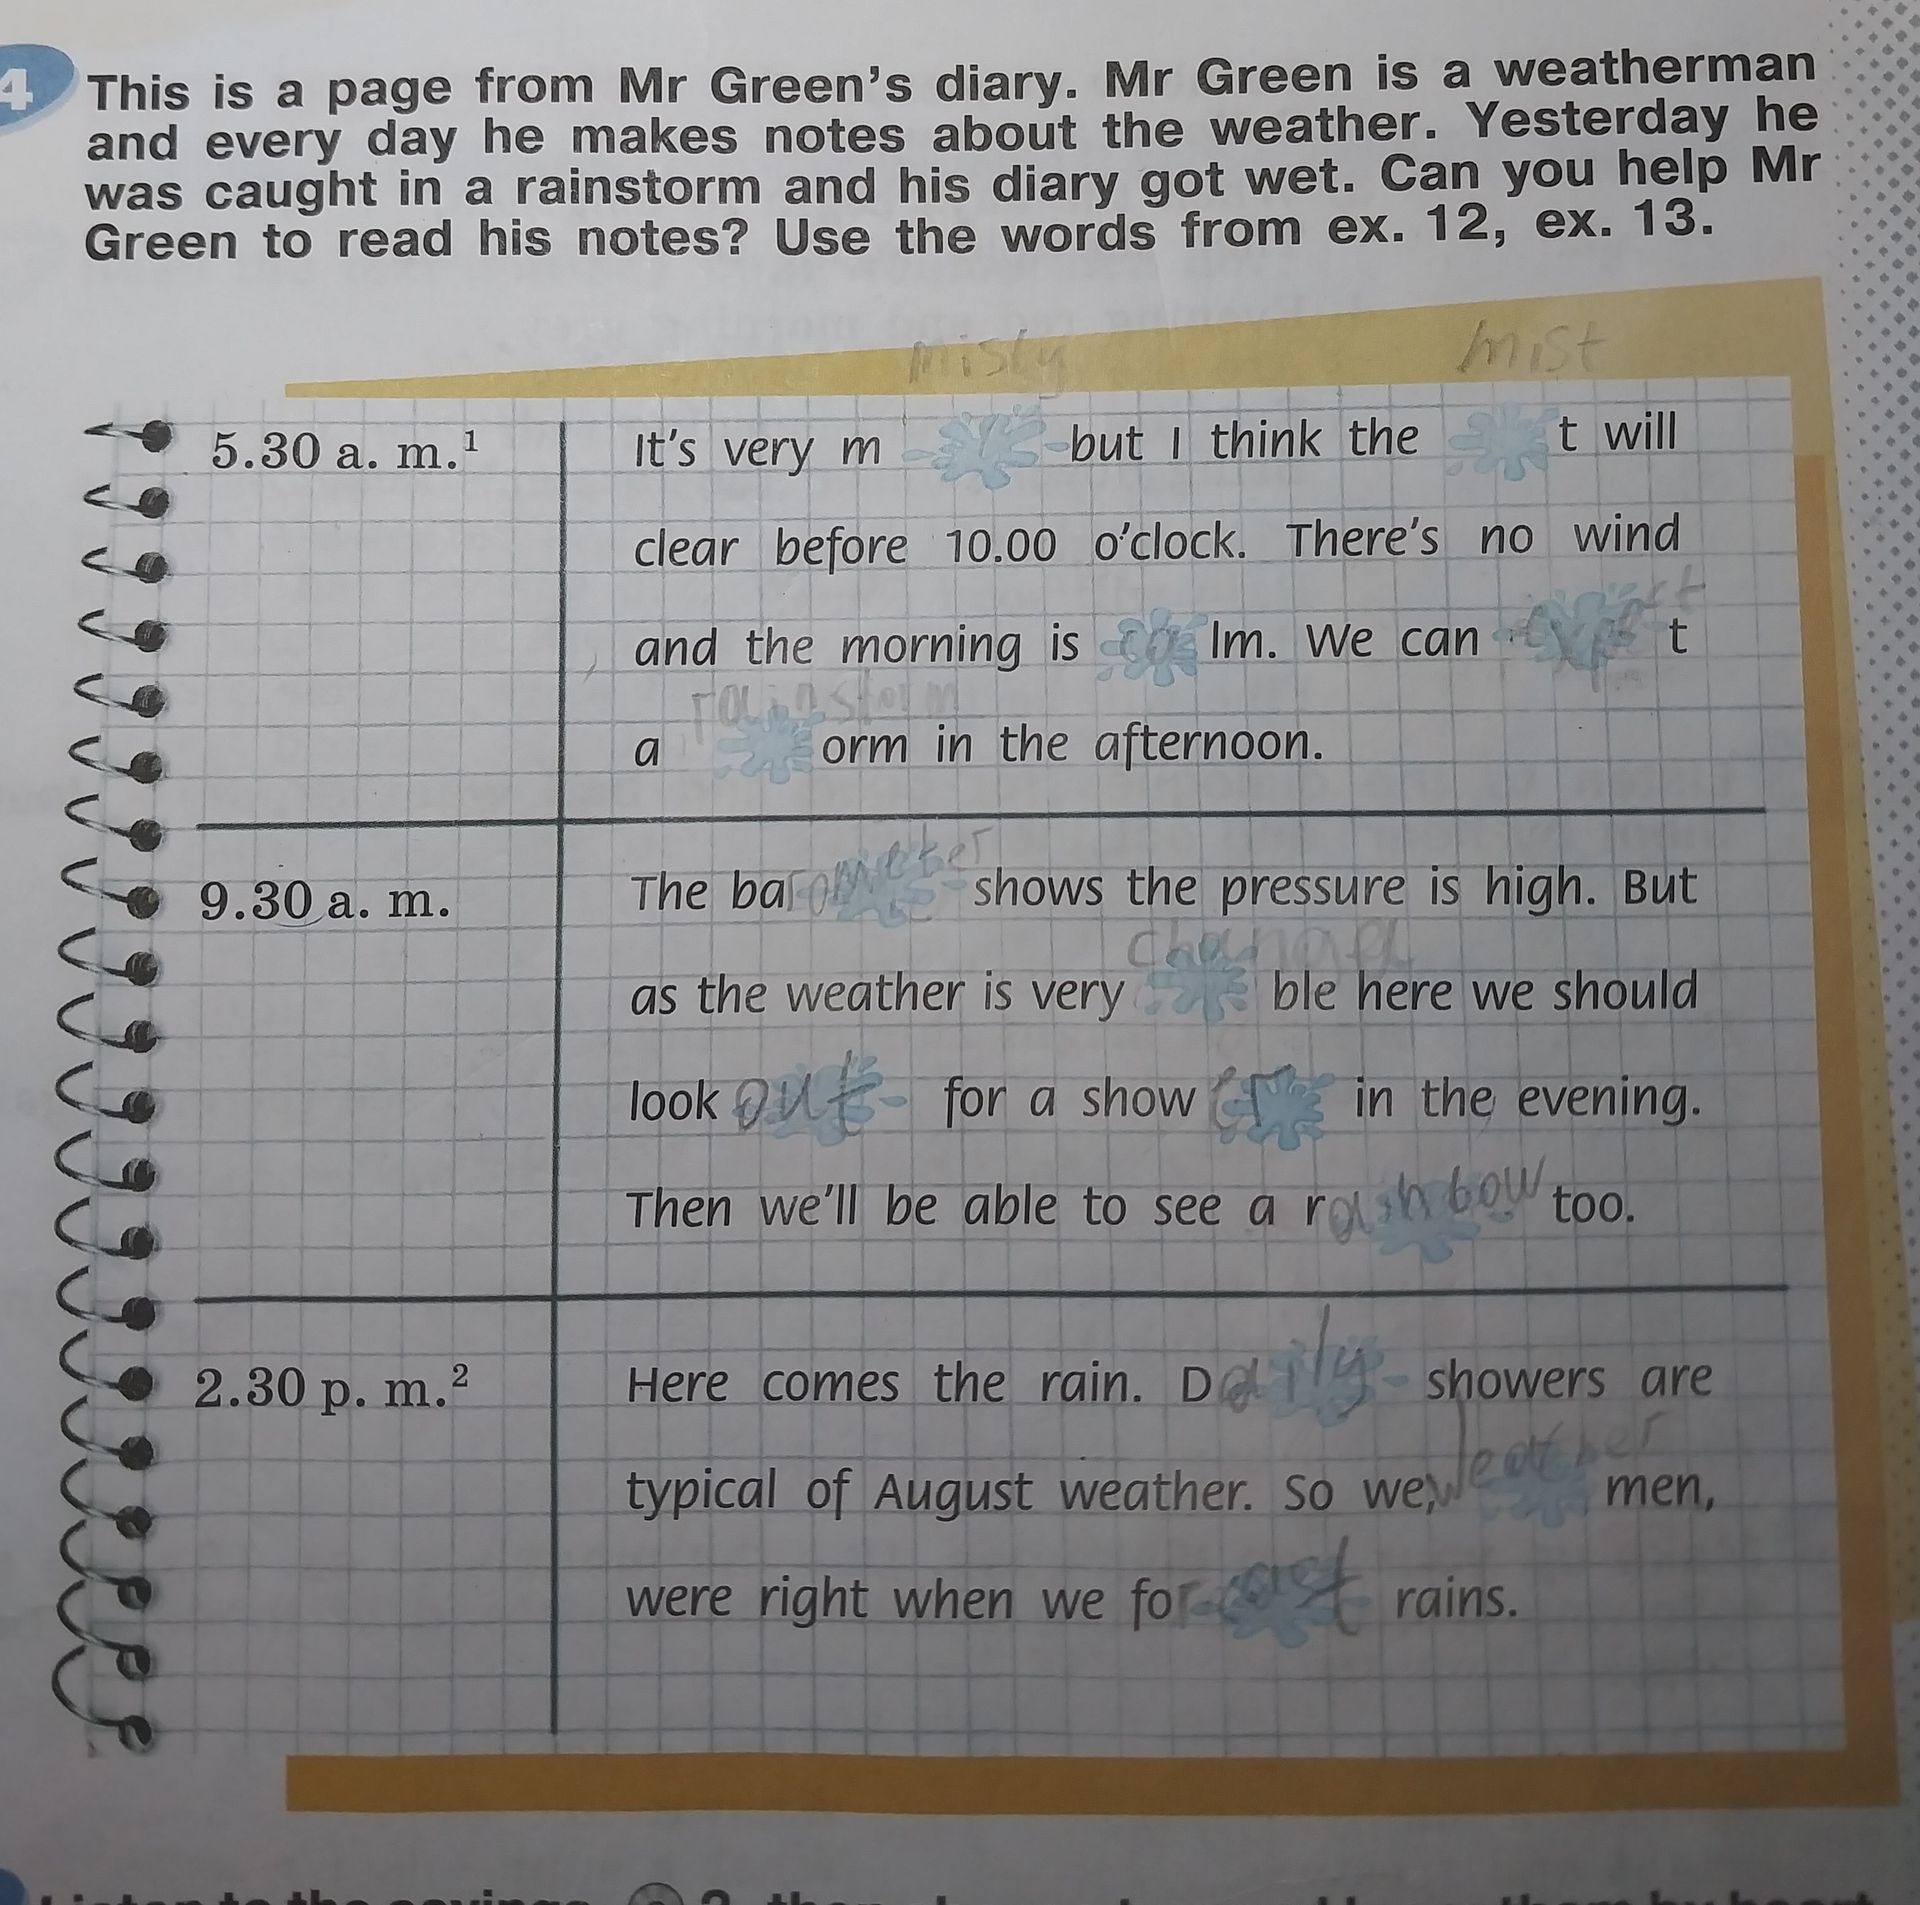 4 This is a page from Mr Green's diary. Mr Green is a weatherman
and every day he makes notes about the weather. Yesterday he
was caught in a rainstorm and his diary got wet. Can you help Mr
Green to read his notes? Use the words from ex. 12, ex. 13.
misty mist
5.30 a. m.¹ It's very m but I think the t will
clear before 10.00 o'clock. There's no wind
and the morning is ca lm. We can t
rainstorm
a orm in the afternoon.
9.30 a. m. The barometer shows the pressure is high. But
as the weather is very ble here we should
look out for a show er in the evening.
Then we'll be able to see a rainbow too.
2.30 p. m.² Here comes the rain. Daily showers are
typical of August weather. So we, weather men,
were right when we for cast rains.